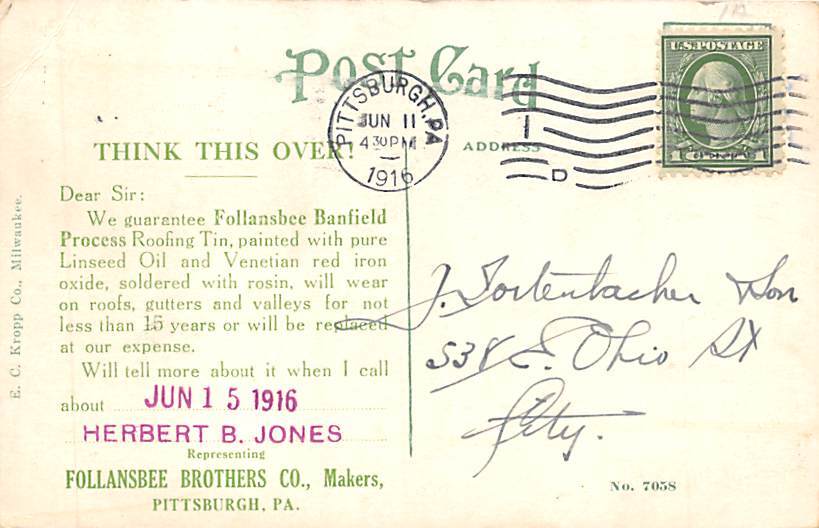 Post Card
U.S. POSTAGE
PITTSBURGH, PA
JUN 11
4 30 PM
1916
D
THINK THIS OVER!
ADDRESS
Dear Sir:
We guarantee Follansbee Banfield
Process Roofing Tin, painted with pure
Linseed Oil and Venetian red iron
oxide, soldered with rosin, will wear
on roofs, gutters and valleys for not
less than 15 years or will be replaced
at our expense.
Will tell more about it when I call
about JUN 15 1916
HERBERT B. JONES
Representing
FOLLANSBEE BROTHERS CO., Makers,
PITTSBURGH, PA.
E. C. Kropp Co., Milwaukee.
J. Tortenbacher & Son
538 E. Ohio St
City.
No. 7058